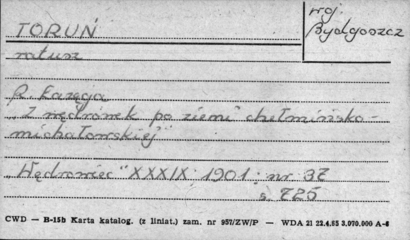 TORUŃ
woj. Bydgoszcz
ratusz
R. Łazęga
„Z wędrówek po ziemi chełmińsko-
michałowskiej"
„Wędrowiec" XXXIX 1901 nr 37
s. 725
CWD — B-15b Karta katalog. (z liniat.) zam. nr 957/ZW/P — WDA 21 22.4.55 3,070.000 A-6